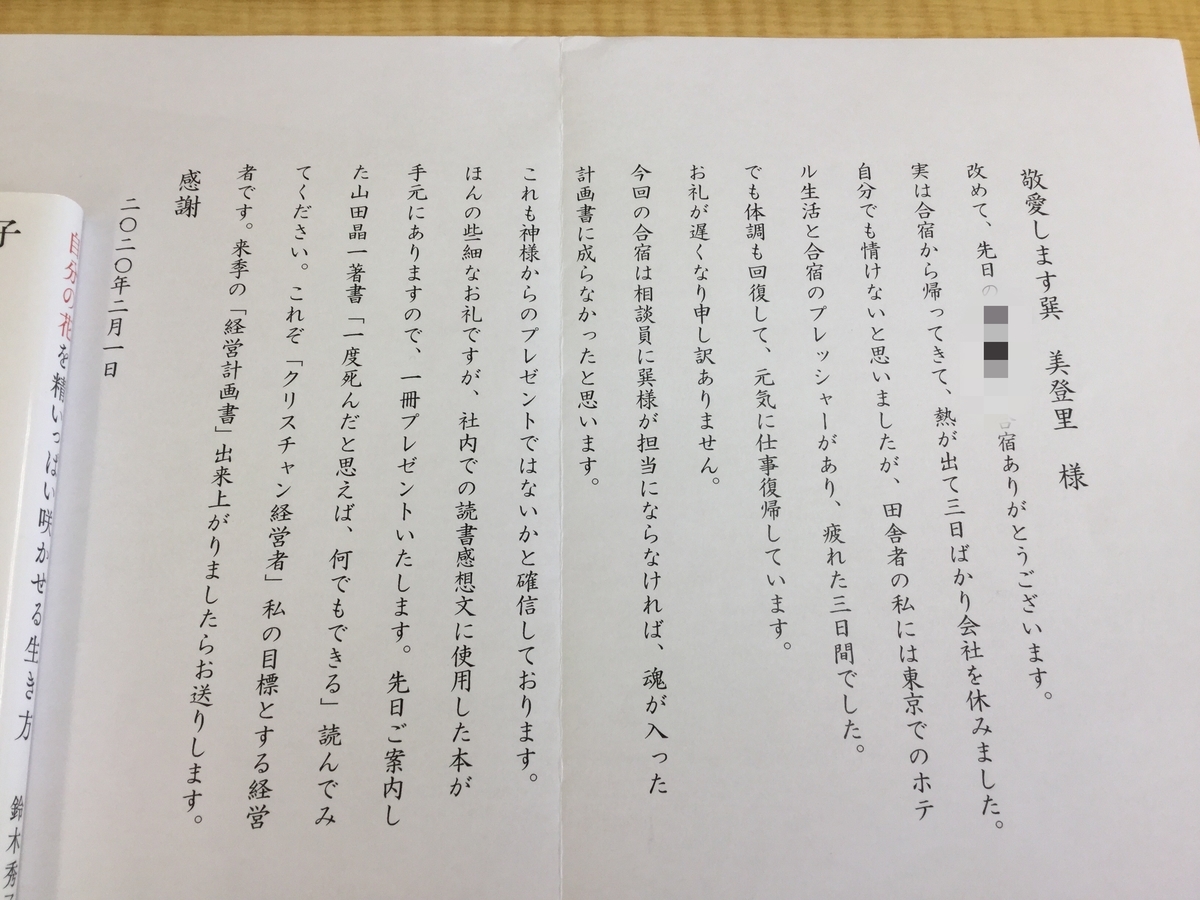 敬愛します巽　美登里　様
改めて、先日の　合宿ありがとうございます。
実は合宿から帰ってきて、熱が出て三日ばかり会社を休みました。
自分でも情けないと思いましたが、田舎者の私には東京でのホテ
ル生活と合宿のプレッシャーがあり、疲れた三日間でした。
でも体調も回復して、元気に仕事復帰しています。
お礼が遅くなり申し訳ありません。
今回の合宿は相談員に巽様が担当にならなければ、魂が入った
計画書に成らなかったと思います。
これも神様からのプレゼントではないかと確信しております。
ほんの些細なお礼ですが、社内での読書感想文に使用した本が
手元にありますので、一冊プレゼントいたします。先日ご案内し
た山田晶一著書「一度死んだと思えば、何でもできる」読んでみ
てください。これぞ「クリスチャン経営者」私の目標とする経営
者です。来季の「経営計画書」出来上がりましたらお送りします。
感謝
二〇二〇年二月一日
自分の花を精いっぱい咲かせる生き方
鈴木秀
子